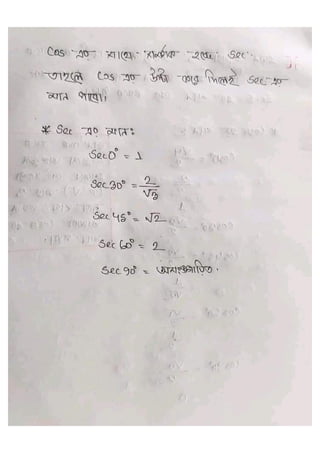 Cos এর সাথে সম্পর্ক হচ্ছে Sec.
তাহলে Cos এর উল্টা করে দিলেই Sec এর
মান পাবো।
* Sec এর মান:
Sec0° = 1
Sec30° = 2/√3
Sec 45° = √2
Sec 60° = 2
Sec 90° = অসংজ্ঞায়িত.